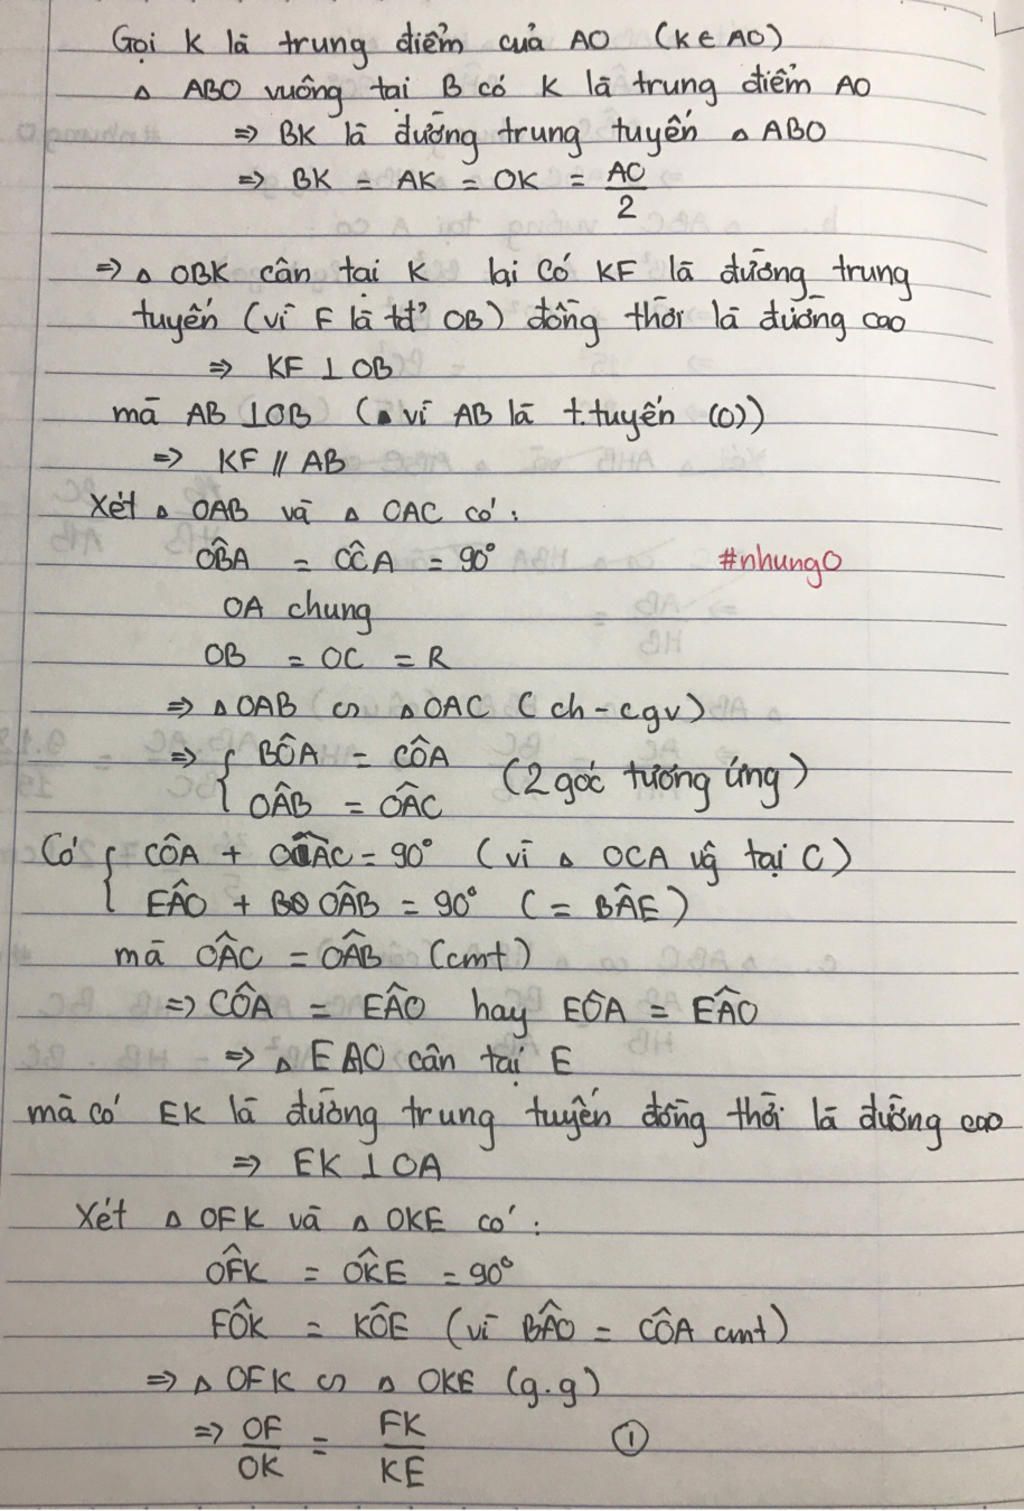 Gọi K là trung điểm của AO (K∈AO)
△ ABO vuông tại B có K là trung điểm AO
⇒ BK là đường trung tuyến △ ABO
⇒ BK = AK = OK = AO/2
⇒ △ OBK cân tại K lại có KF là đường trung
tuyến (vì F là tđ' OB) đồng thời là đường cao
⇒ KF ⊥ OB
mà AB ⊥ OB (vì AB là t.tuyến (O))
⇒ KF // AB
Xét △ OAB và △ OAC có:
OB̂A = OĈA = 90° #nhung0
OA chung
OB = OC = R
⇒ △OAB ∽ △OAC (ch-cgv)
⇒ { BÔA = CÔA
OÂB = OÂC (2 góc tương ứng)
Có { CÔA + OÂC = 90° (vì △ OCA vĝ tại C)
EÂO + OÂB = 90° (= BÂE)
mà OÂC = OÂB (cmt)
⇒ CÔA = EÂO hay EÔA = EÂO
⇒ △ EAO cân tại E
mà có EK là đường trung tuyến đồng thời là đường cao
⇒ EK ⊥ OA
Xét △ OFK và △ OKE có:
OF̂K = OK̂E = 90°
FÔK = KÔE (vì BÂO = CÔA cmt)
⇒ △ OFK ∽ △ OKE (g.g)
⇒ OF/OK = FK/KE ①